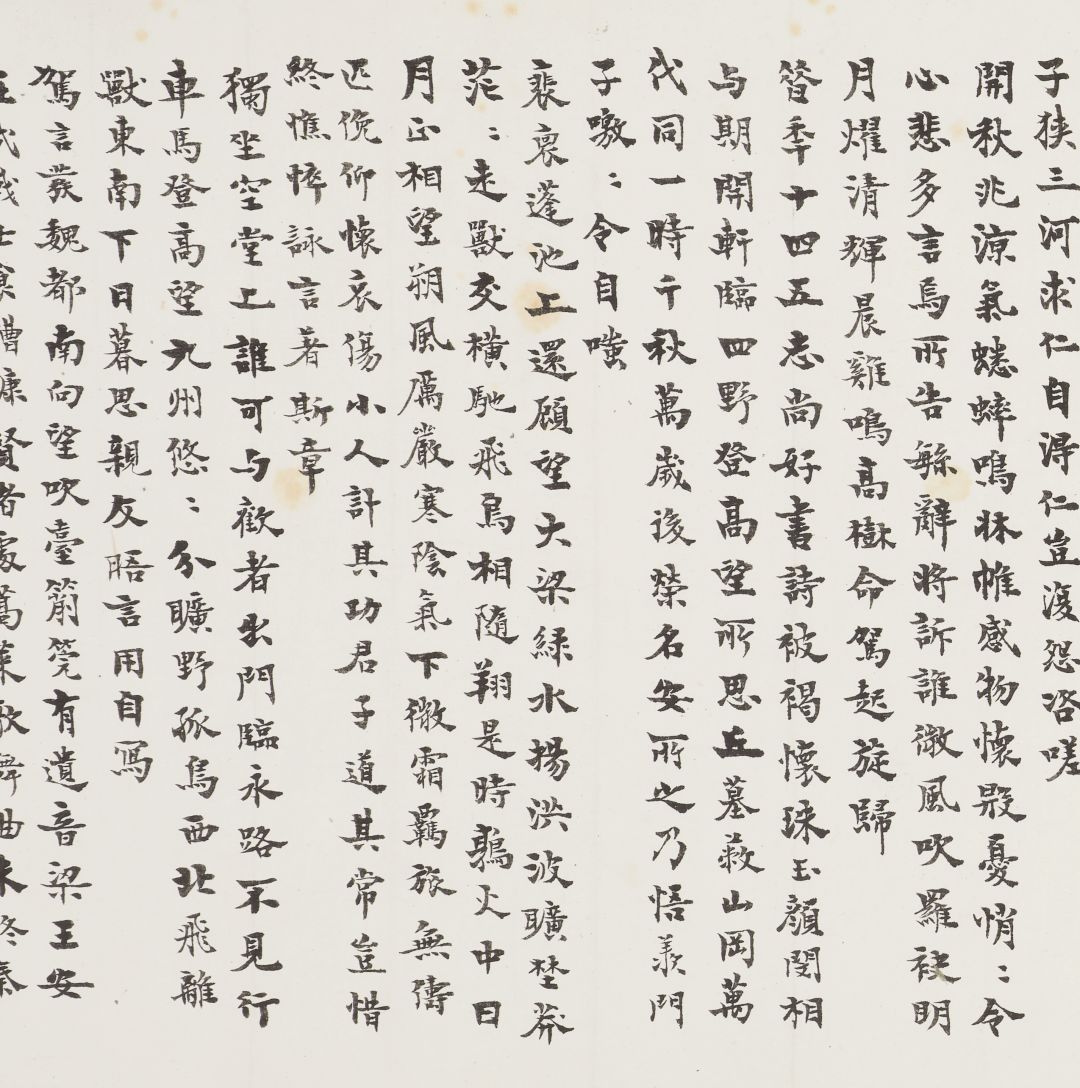 子狭三河求仁自得仁豈復怨咨嗟
開秋兆涼氣蟋蟀鳴牀帷感物懷殷憂悄〻令
心悲多言焉所告繇辭將訴誰微風吹羅袂明
月燿清輝晨雞鳴高樹命駕起旋歸
昝季十四五志尚好書詩被褐懷珠玉顏閔相
与期開軒臨四野登高望所思丘墓蔽山岡萬
代同一時千秋萬歲後榮名安所之乃悟羨門
子噭〻令自嗤
裴褱蓬池上還顧望大梁綠水揚洪波曠埜莽
茫〻走獸交橫馳飛鳥相隨翔是時鶉火中日
月正相望朔風厲嚴寒陰氣下微霜羈旅無儔
匹俛仰懷哀傷小人計其功君子道其常豈惜
終憔悴詠言著斯章
獨坐空堂上誰可与歡者出門臨永路不見行
車馬登高望九州悠〻分曠野孤鳥西北飛離
獸東南下日暮思親友晤言用自寫
駕言發魏都南向望吹臺簫筦有遺音梁王安
在戰士食糟糠賢者處蒿萊歌舞曲未終秦